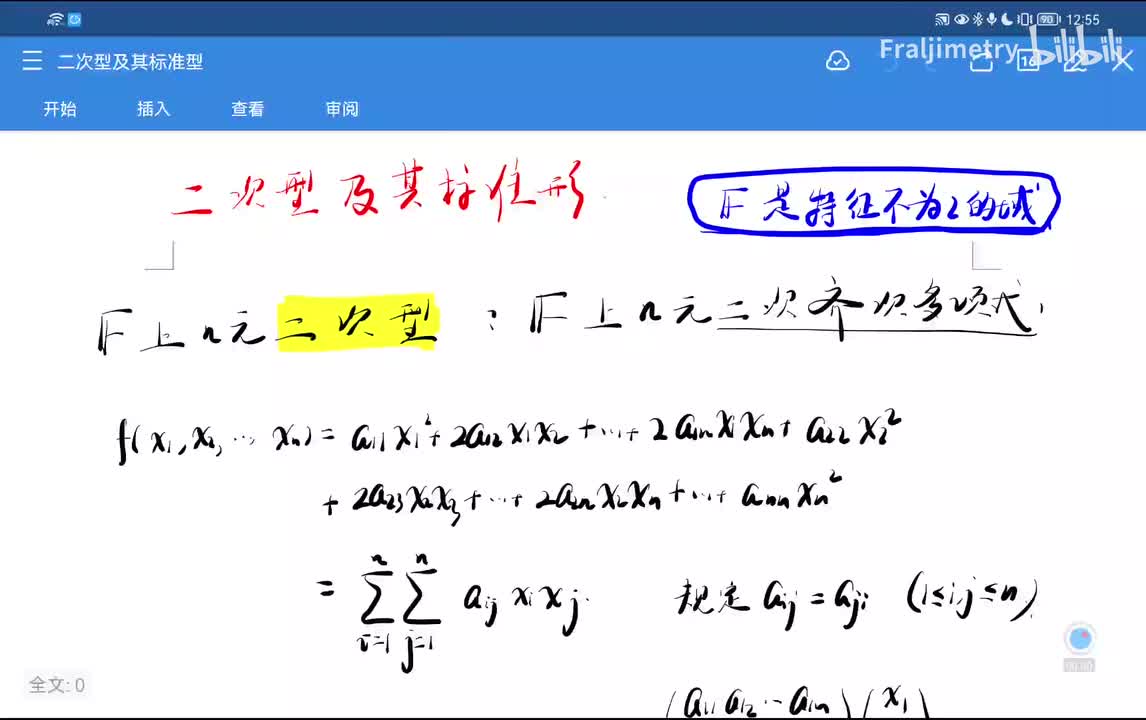 90 12:55
二次型及其标准型 Fraljimetry bilibili 16
开始 插入 查看 审阅
二次型及其标准形 𝔽是特征不为2的域
𝔽上n元二次型：𝔽上n元二次齐次多项式.
f(x₁,x₂,⋯,xₙ)=a₁₁x₁²+2a₁₂x₁x₂+⋯+2a₁ₙx₁xₙ+a₂₂x₂²
+2a₂₃x₂x₃+⋯+2a₂ₙx₂xₙ+⋯+aₙₙxₙ²
=∑ⁿᵢ₌₁∑ⁿⱼ₌₁ aᵢⱼxᵢxⱼ. 规定 aᵢⱼ=aⱼᵢ (1≤i,j≤n)
00:00
全文: 0
(a₁₁ a₁₂ ⋯ a₁ₙ)(x₁)